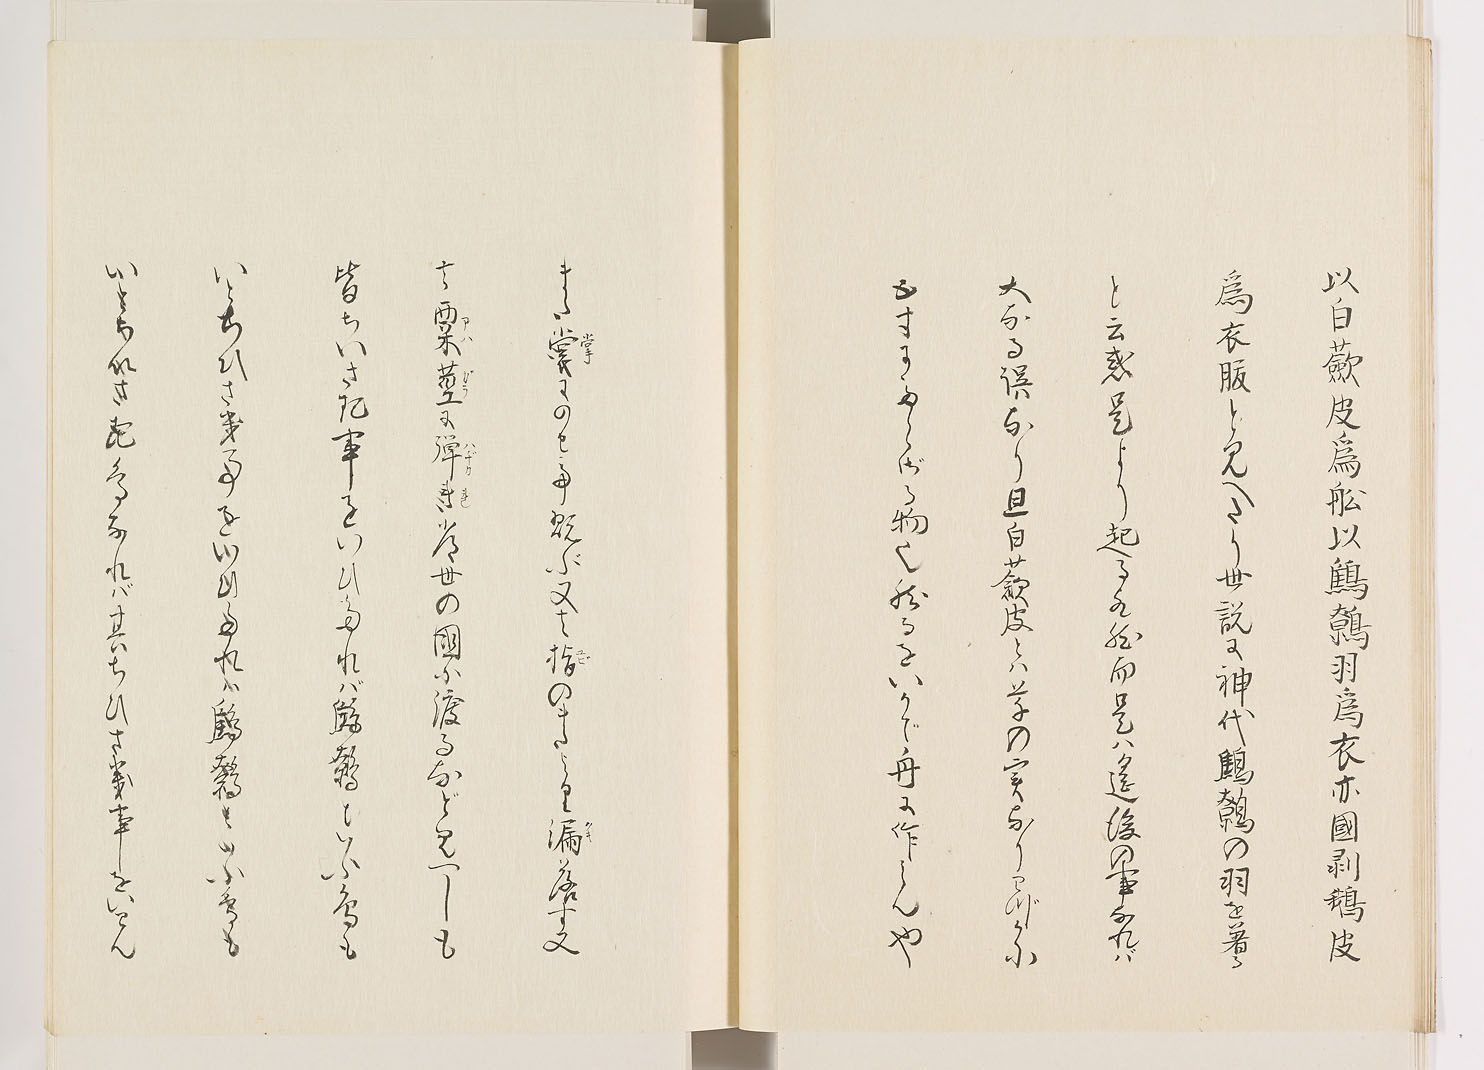 以白蘞皮爲舩以鷦鷯羽爲衣亦國剥鵝皮
爲衣服と見へたり世説に神代鷦鷯の羽を著る
と云惑是より起る然而是ハ遙後の事なれバ
大なる誤なり且白蘞皮とハ草の実なりわづかに
五寸にたらざる物也然るをいかで舟に作らんや
また掌にのせ給ふ又は指のまたより漏落す又
は粟茎に弾き常世の國に渡るなど見へしも
皆ちいさき事をいひたれバ鷦鷯といふ鳥も
いとちひさき事をいひたれハ鷦鷯といふ鳥も
いとちいさき鳥なれバ其ちひさき事をいはん
掌
アハ
がら
ハヂカ
ユビ